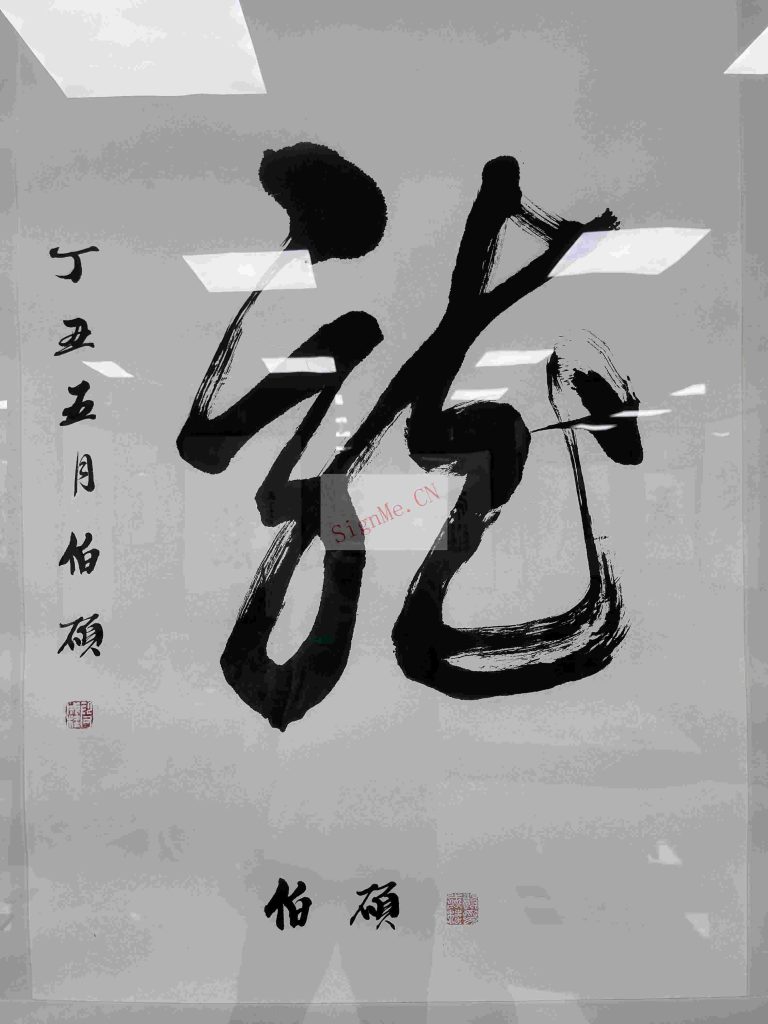 龍
丁丑五月伯碩
SignMe.CN
伯碩